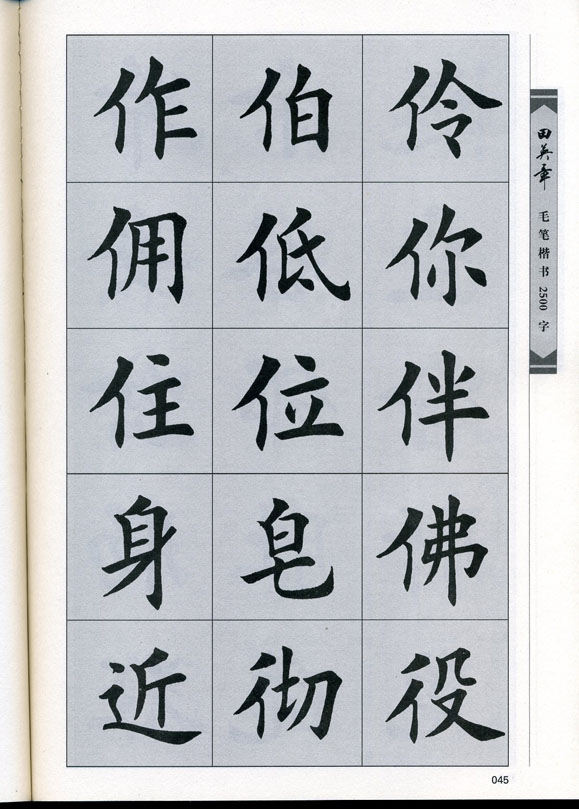 作伯伶
佣低你
住位伴
身皂佛
近彻役
田英章 毛笔楷书2500字
045